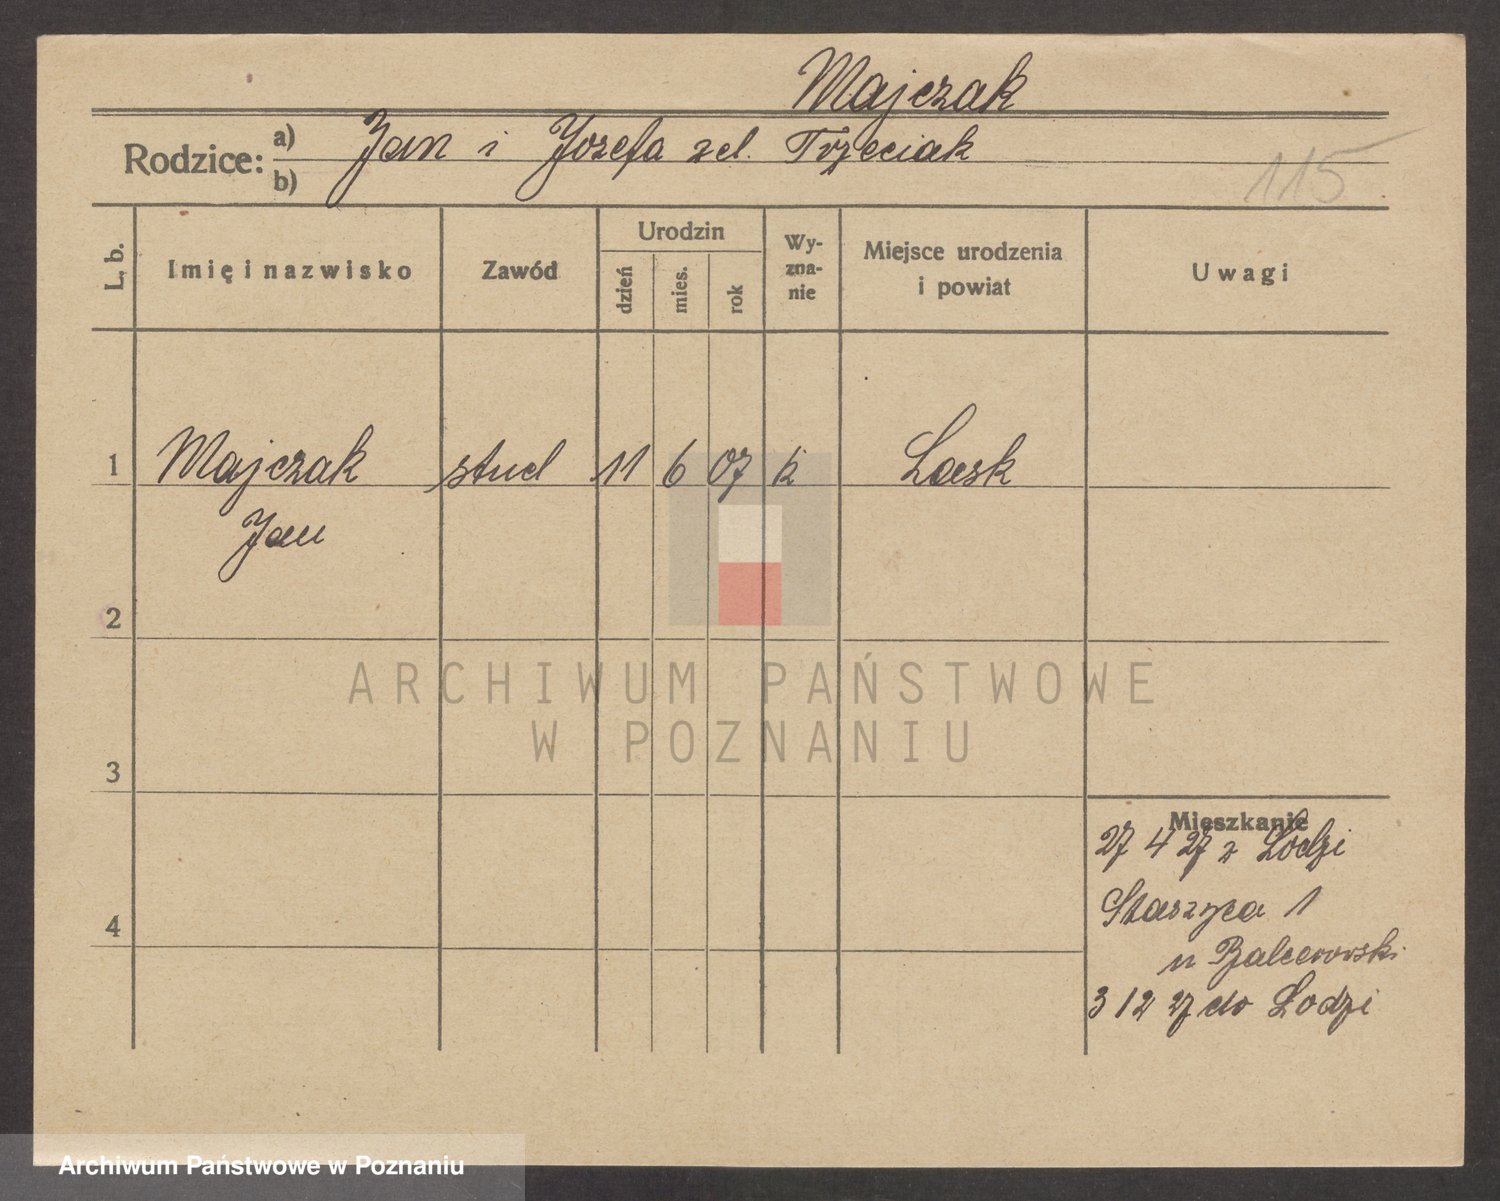 Majczak
Rodzice: a) Jan i Jozefa zd. Trzeciak
b)
115
L. b. Imię i nazwisko Zawód Urodzin dzień mies. rok Wy-zna-nie Miejsce urodzenia i powiat Uwagi
1 Majczak stud 11 6 07 k Lask
Jan
2
ARCHIWUM PAŃSTWOWE
W POZNANIU
3
Mieszkanie
27 4 27 z Lodzi
Staszyca 1
4
u Balcerowski
3 12 27 do Lodzi
Archiwum Państwowe w Poznaniu